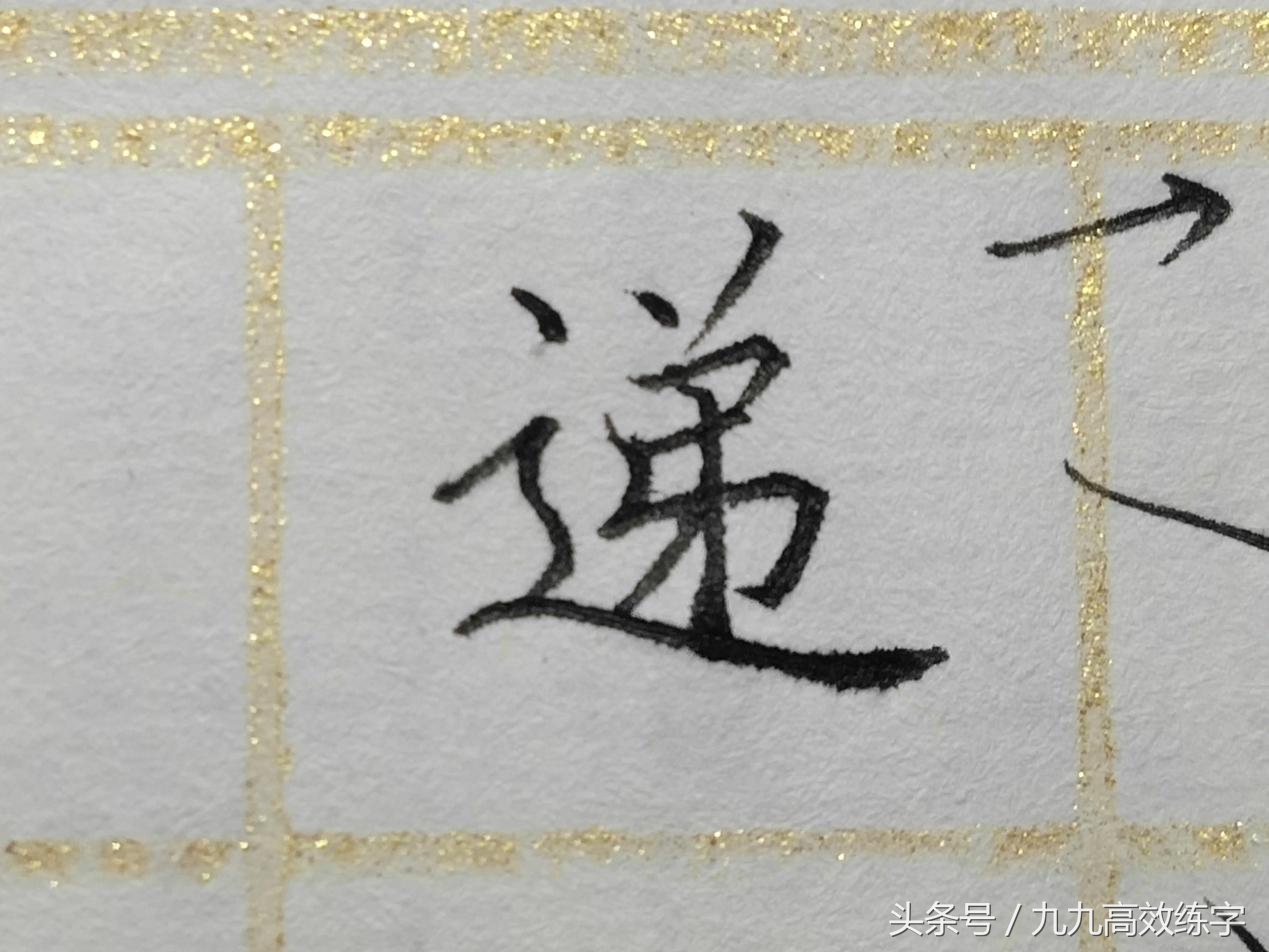 递→
头条号 / 九九高效练字